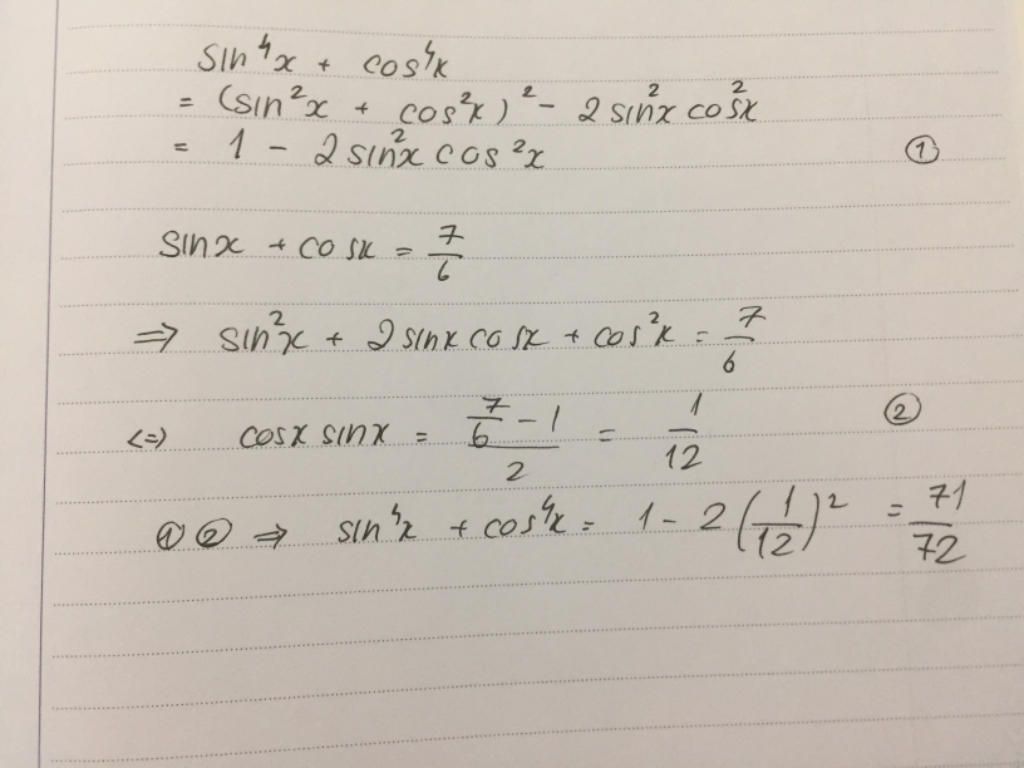 sin⁴x + cos⁴x
= (sin²x + cos²x)² - 2 sin²x cos²x
= 1 - 2 sin²x cos²x ①
sinx + cosx = 7/6
⇒ sin²x + 2 sinx cosx + cos²x = 7/6
<=> cosx sinx = (7/6 - 1)/2 = 1/12 ②
① ② ⇒ sin⁴x + cos⁴x = 1 - 2(1/12)² = 71/72